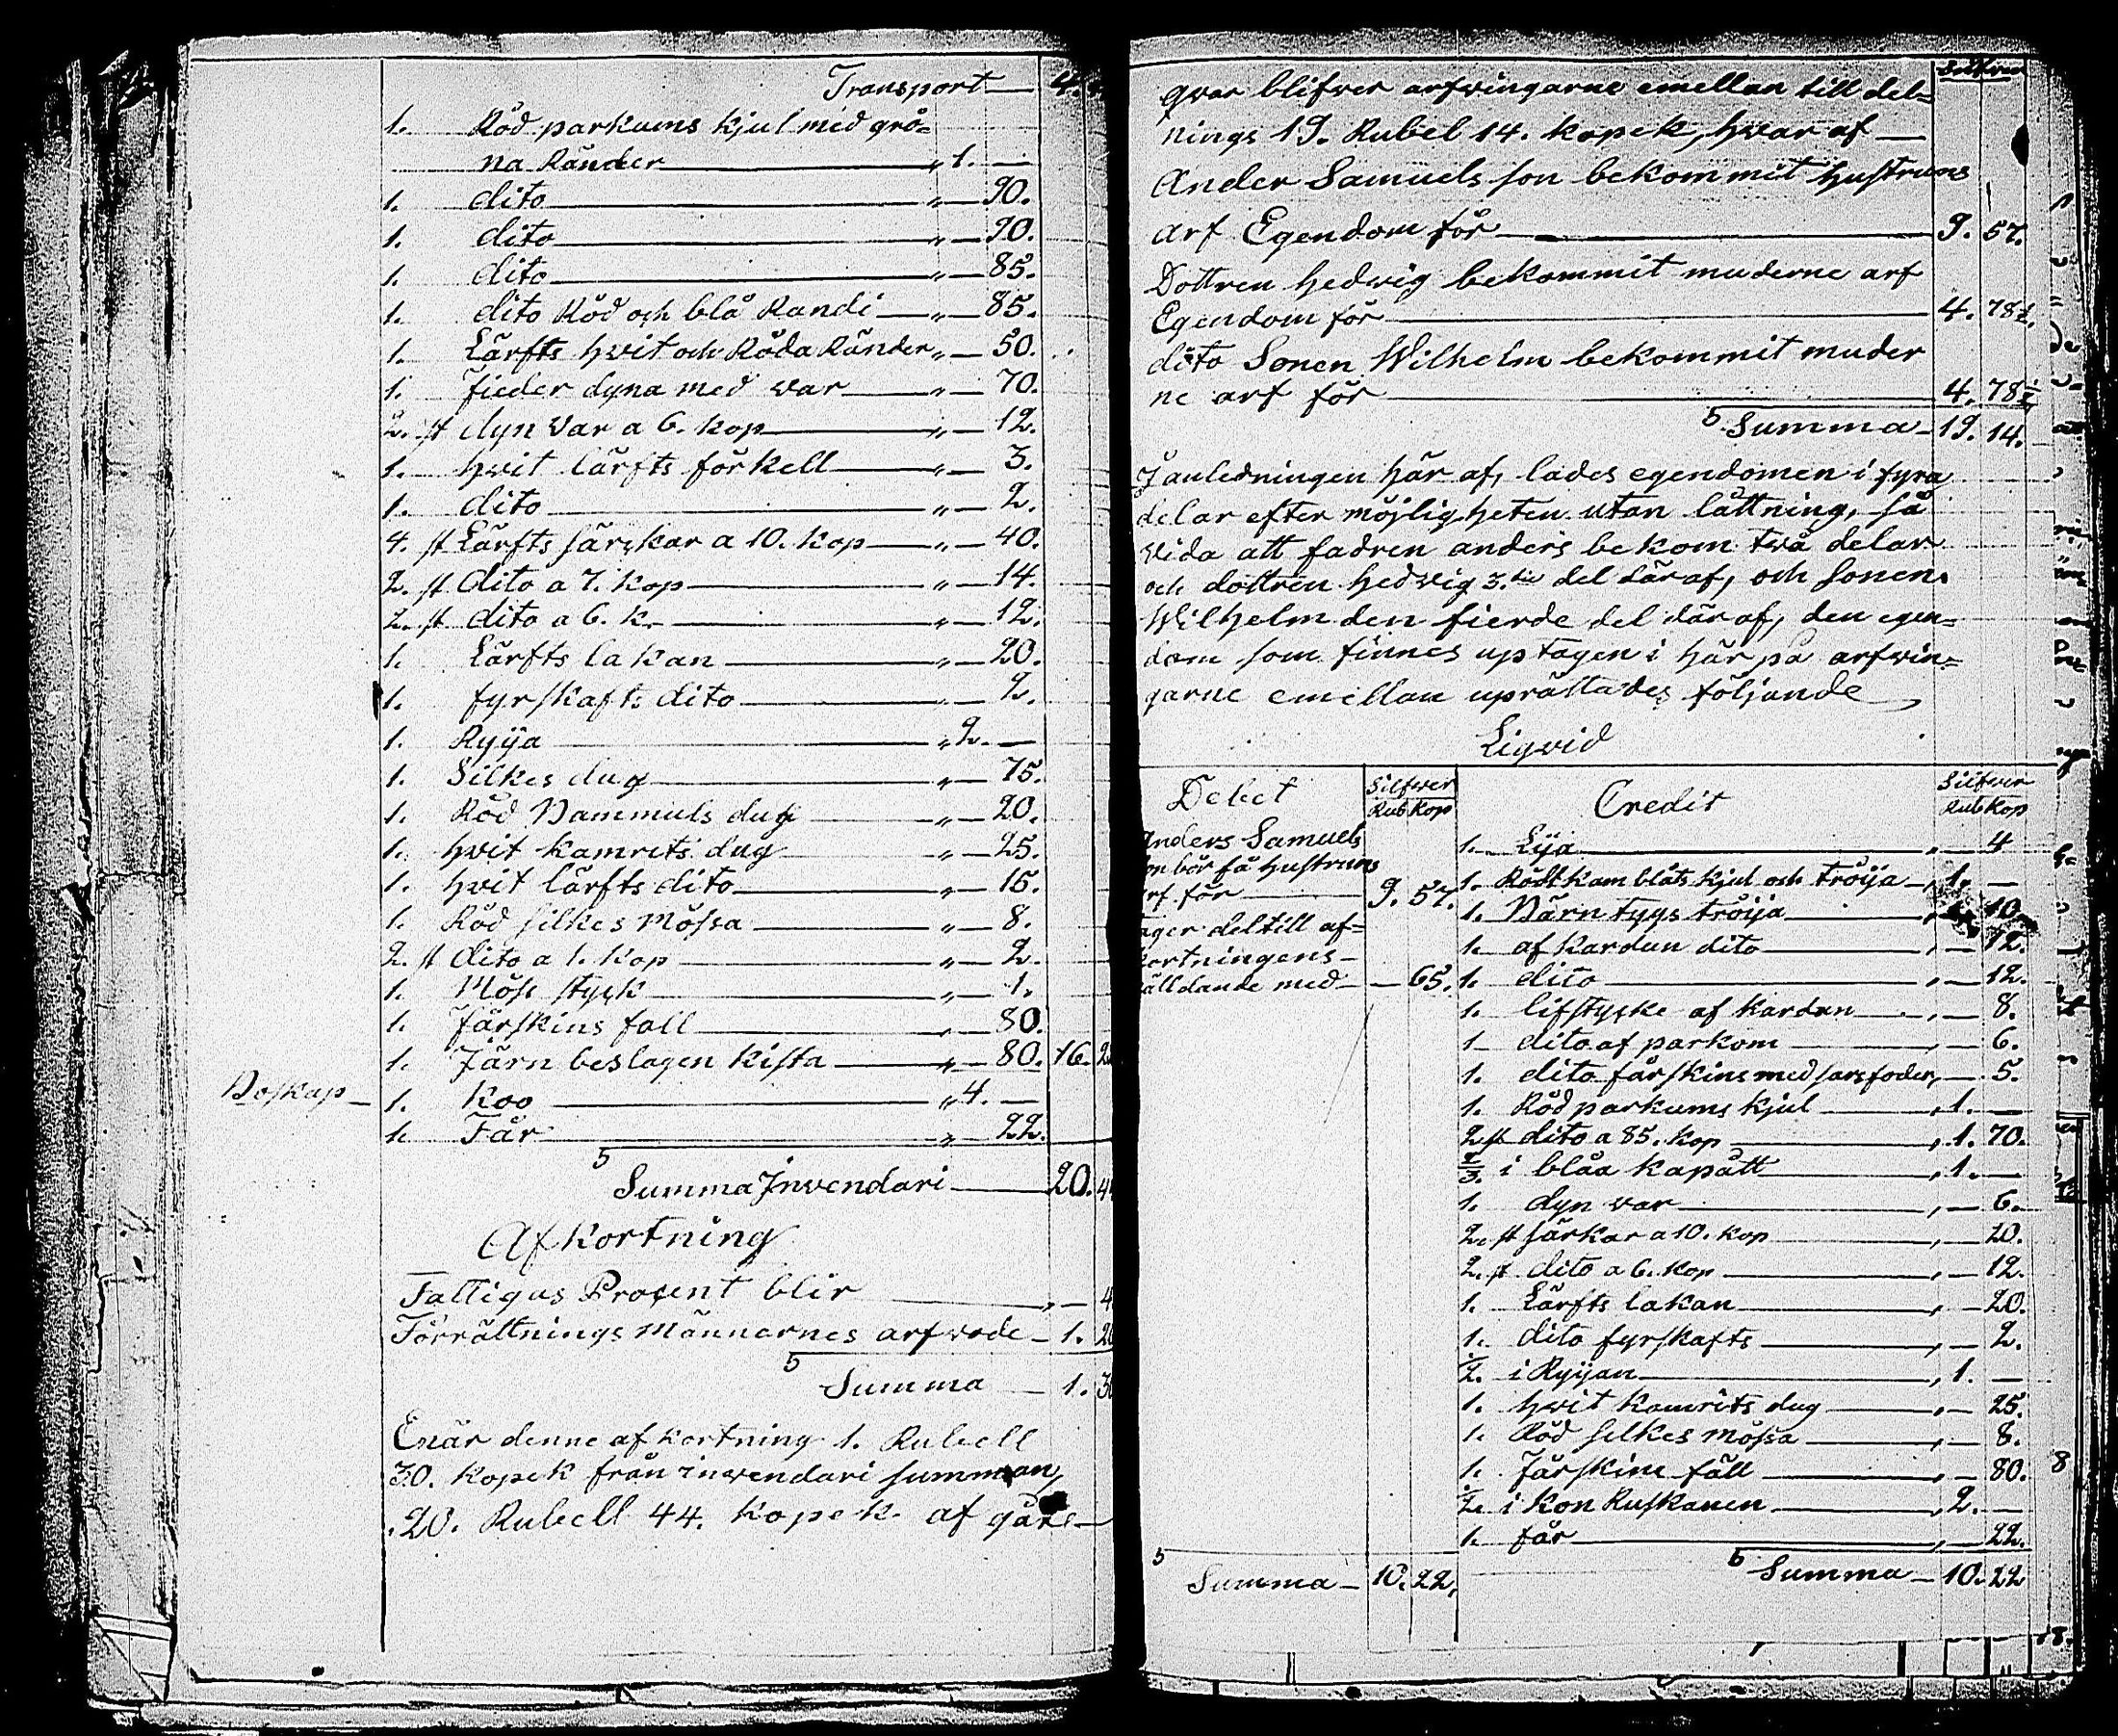 Transport — 4.
1. Röd parkums kjul med grö=
na Ränder — „ 1. —
1. dito — „ — 90.
1. dito — „ — 90.
1. dito — „ — 85.
1. dito Röd och blå Randi — „ — 85.
1. Lärfts hvit och Röda Ränder „ — 50.
1. fieder dyna med var — „ — 70.
2. st dyn var a 6. kop — „ — 12.
1. hvit lärfts förkell — „ — 3.
1. dito — „ — 2.
4. st Lärfts särkar a 10. kop — „ — 40.
2. st dito a 7. kop — „ — 14.
2. st dito a 6. k. — „ — 12.
1. Lärfts lakan — „ — 20.
1. fyrskafts dito — „ — 2.
1. Ryija — „ 2. —
1. Silkes dug — „ — 75.
1. Röd Bammuls dug — „ — 20.
1. hvit kamrits dug — „ — 25.
1. hvit lärfts dito — „ — 15.
1. Röd silkes mössa — „ — 8.
2. st dito a 1. kop — „ — 2.
1. Möss styck — „ — 1.
1. fårskins fäll — „ — 80.
1. Järn beslagen kista — „ — 80. 16.
Boskap — 1. koo — „ 4. —
1. Får — „ — 22.
S Summa Inwendari — 20. 4
Afkortning
Fattigas Procent blir — „ — 4
Förrättnings männernes arfvode — 1. 20
S Summa — 1. 30
Enär denne afkortning 1. Rubell
30. kopek från inwendari summan,
20. Rubell 44. kopek. af gåre —
qvar blifver arfvingarne emellan till del=
nings 19. Rubel 14. kopek, hvar af —
Ander Samuels son bekommit hustruns
arf Egendom för — 9. 57.
Dottren Hedvig bekommit muderne arf
Egendom för — 4. 78½.
dito Sonen Wilhelm bekommit muder
ne arf för — 4. 78½
S Summa — 19. 14.
I anledningen här af, lades egendomen i fyra
delar efter möjligheten utan lättning, så
vida att fadren anders bekom två delar
och dottren hedvig 3.die del däraf, och sonen
Wilhelm den fierde del däraf, den egen=
dom som finnes uptagen i här på arfvin=
garne emellan uprättades följande
Liqvid
Debet Silfwer Rub Kop Credit Silfwer Rub Kop
Anders Samuels
on bör få hustruns
rf för — 9. 57.
ager deltill af=
kortningens —
älldande med — — 65.
S Summa — 10. 22.
1. Lija — „ — 4
1. Rödt kamblåts kjul och tröija — „ 1. —
1. Bärn tygs tröija — „ 10
1. af kardun dito — „ — 12.
1. dito — „ — 12.
1. lifstycke af kardun — „ — 8.
1 dito af parkom — „ — 6.
1. dito fårskins med sars foder „ — 5.
1. Röd parkums kjul — „ 1. —
2 st dito a 85. kop — „ 1. 70.
⅔. i blåa kapått — „ 1. —
1. dyn var — „ — 6.
2. st särkar a 10. kop — „ — 20.
2. st dito a 6. kop — „ — 12.
1. Lärfts lakan — „ — 20.
1. dito fyrskafts — „ — 2.
½. i Ryijan — „ 1. —
1. hvit kamrits dug — „ — 25.
1. Röd silkes mössa — „ — 8.
1. fårskins fäll — „ — 80.
½. i kon Ruskanen — „ 2. —
1. får — „ — 22.
S Summa — 10. 22